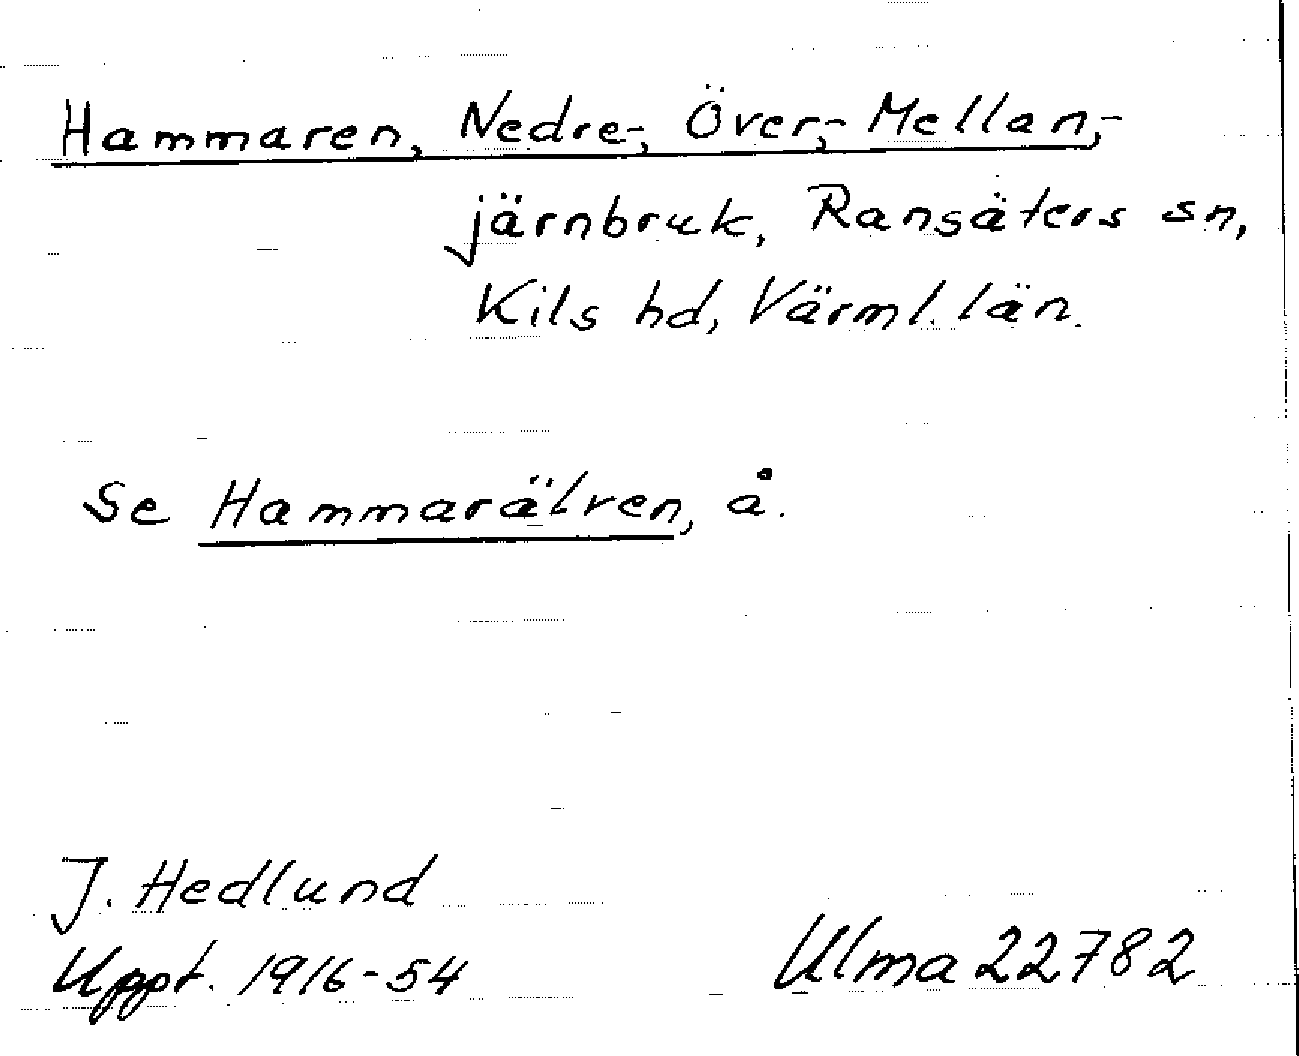 Hammaren, Nedre-, Över-, Mellan,-
järnbruk, Ransäters sn,
Kils hd, Värml. län.
Se Hammarälven, å.
J. Hedlund
Uppt. 1916-54
Ulma 22782